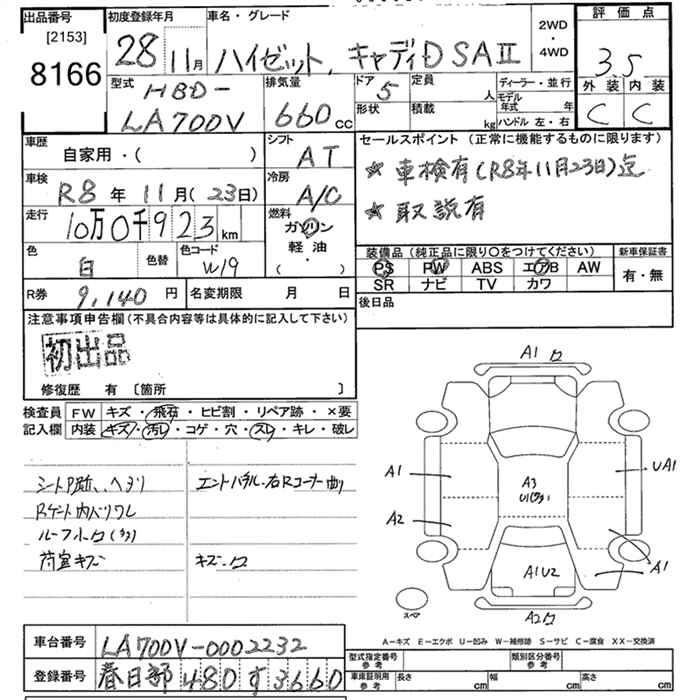 出品番号 初度登録年月 車名・グレード 2WD 評価点
[2153] 28 11月 ハイゼット, キャディD SAⅡ ・ 3.5
8166 4WD
型式 排気量 ドア 定員 ディーラー・並行 外装 内装
HBD- 5 人 モデル年式 年 C C
LA700V 660cc 形状 積載 kg ハンドル 左・右
車歴 シフト セールスポイント (正常に機能するものに限ります)
自家用・( ) AT ★ 車検有(R8年11月23日)迄
車検 冷房
R8年11月(23日) A/C ★ 取説有
走行 燃料
10万0千923km ガソリン
色 色替 色コード 軽油 装備品(純正品に限り○をつけてください) 新車保証書
白 W19 ・ PS PW ABS エアB AW 有・無
( ) SR ナビ TV カワ
R券 9,140円 名変期限 月 日 後日品
注意事項申告欄(不具合内容等は具体的に記入して下さい)
初出品
修復歴 有 〔箇所 〕
検査員 FW キズ・飛石・ヒビ割・リペア跡・×要
記入欄 内装 キズ・汚レ・コゲ・穴・スレ・キレ・破レ
エンドパネル・右Rコーナー曲り
Rゲート内ハリワレ
荷室キズ キズ・ロ
A1 ロ
A1 A3 UA1
A2
A1U2 A1
スペア A2
A-キズ E-エクボ U-凹み W-補修跡 S-サビ C-腐食 XX-交換済
車台番号 LA700V-0002232 型式指定番号 参考 類別区分番号 参考
登録番号 春日部 480 す 3660 車庫証明用 参考 長さ cm 幅 cm 高さ cm